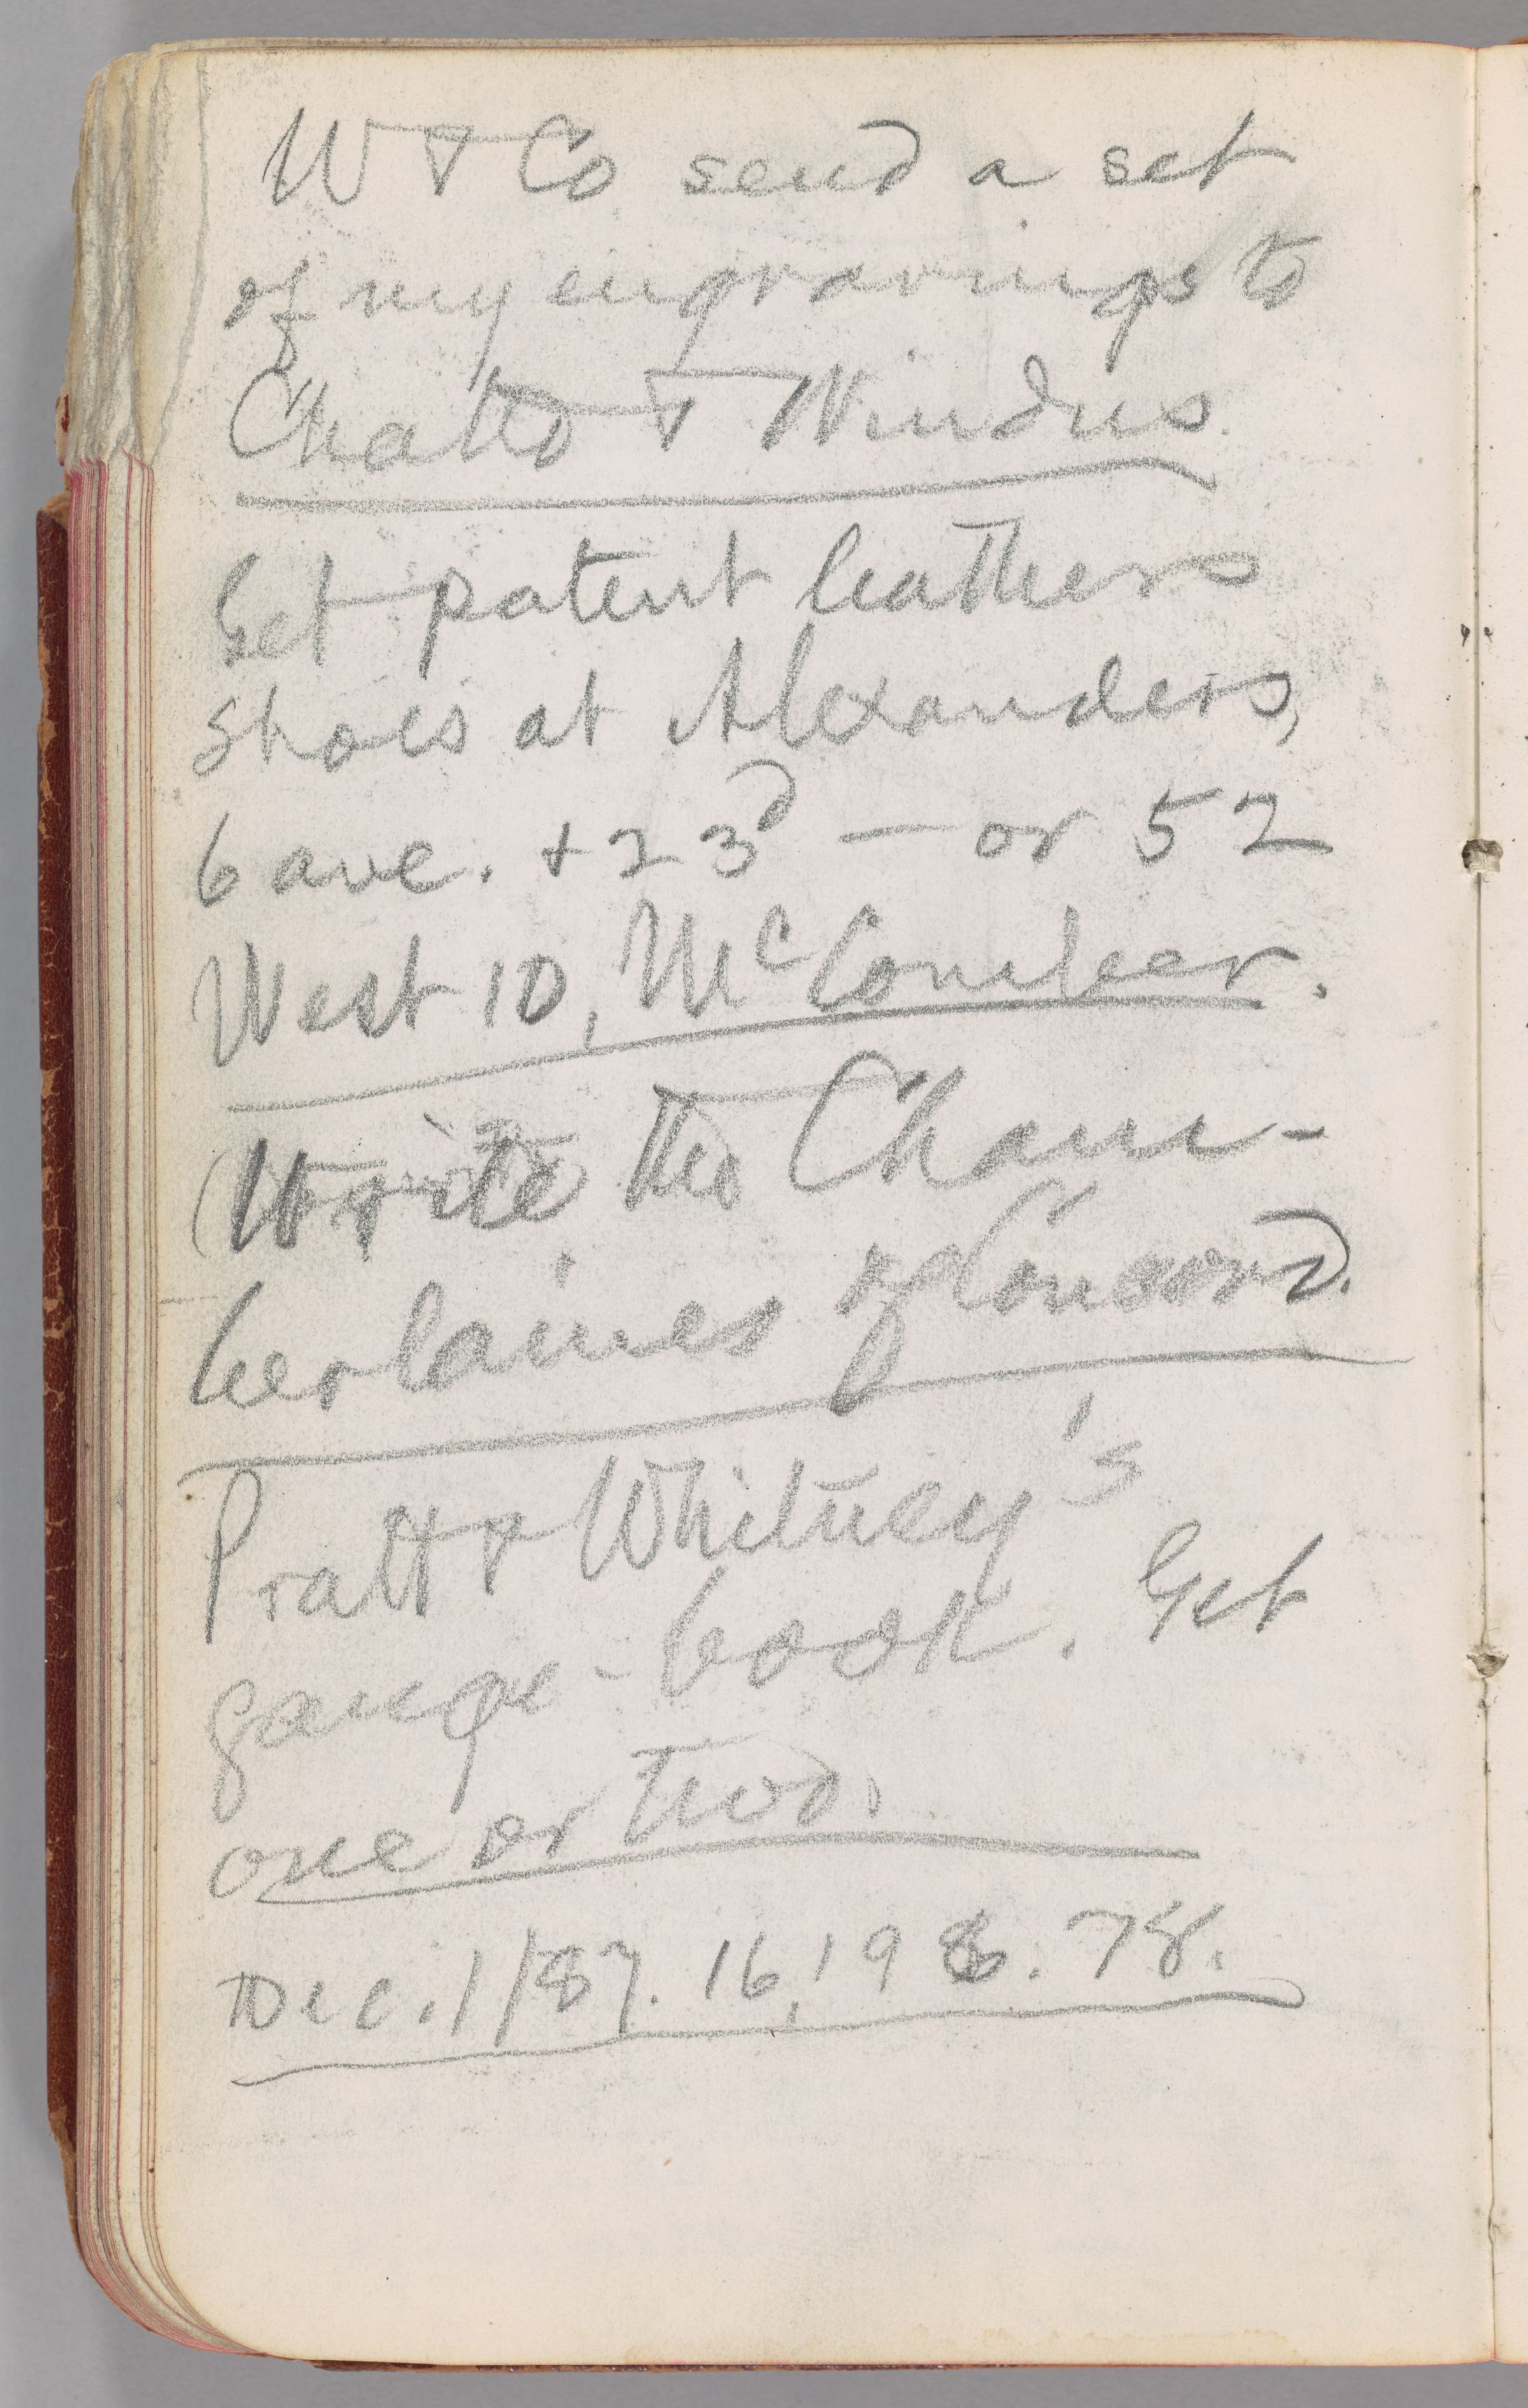 W & Co send a set
of my engravings to
Chatto & Windus.
Get patent leathers
shoes at Alexanders,
6 ave. & 23d — or 52
West 10, McComber.
(Write the Cham-
berlaines of Concord.
Pratt & Whitney's
gauge-book. Get
one or two.
Dec. 1/87. 16,198.78.